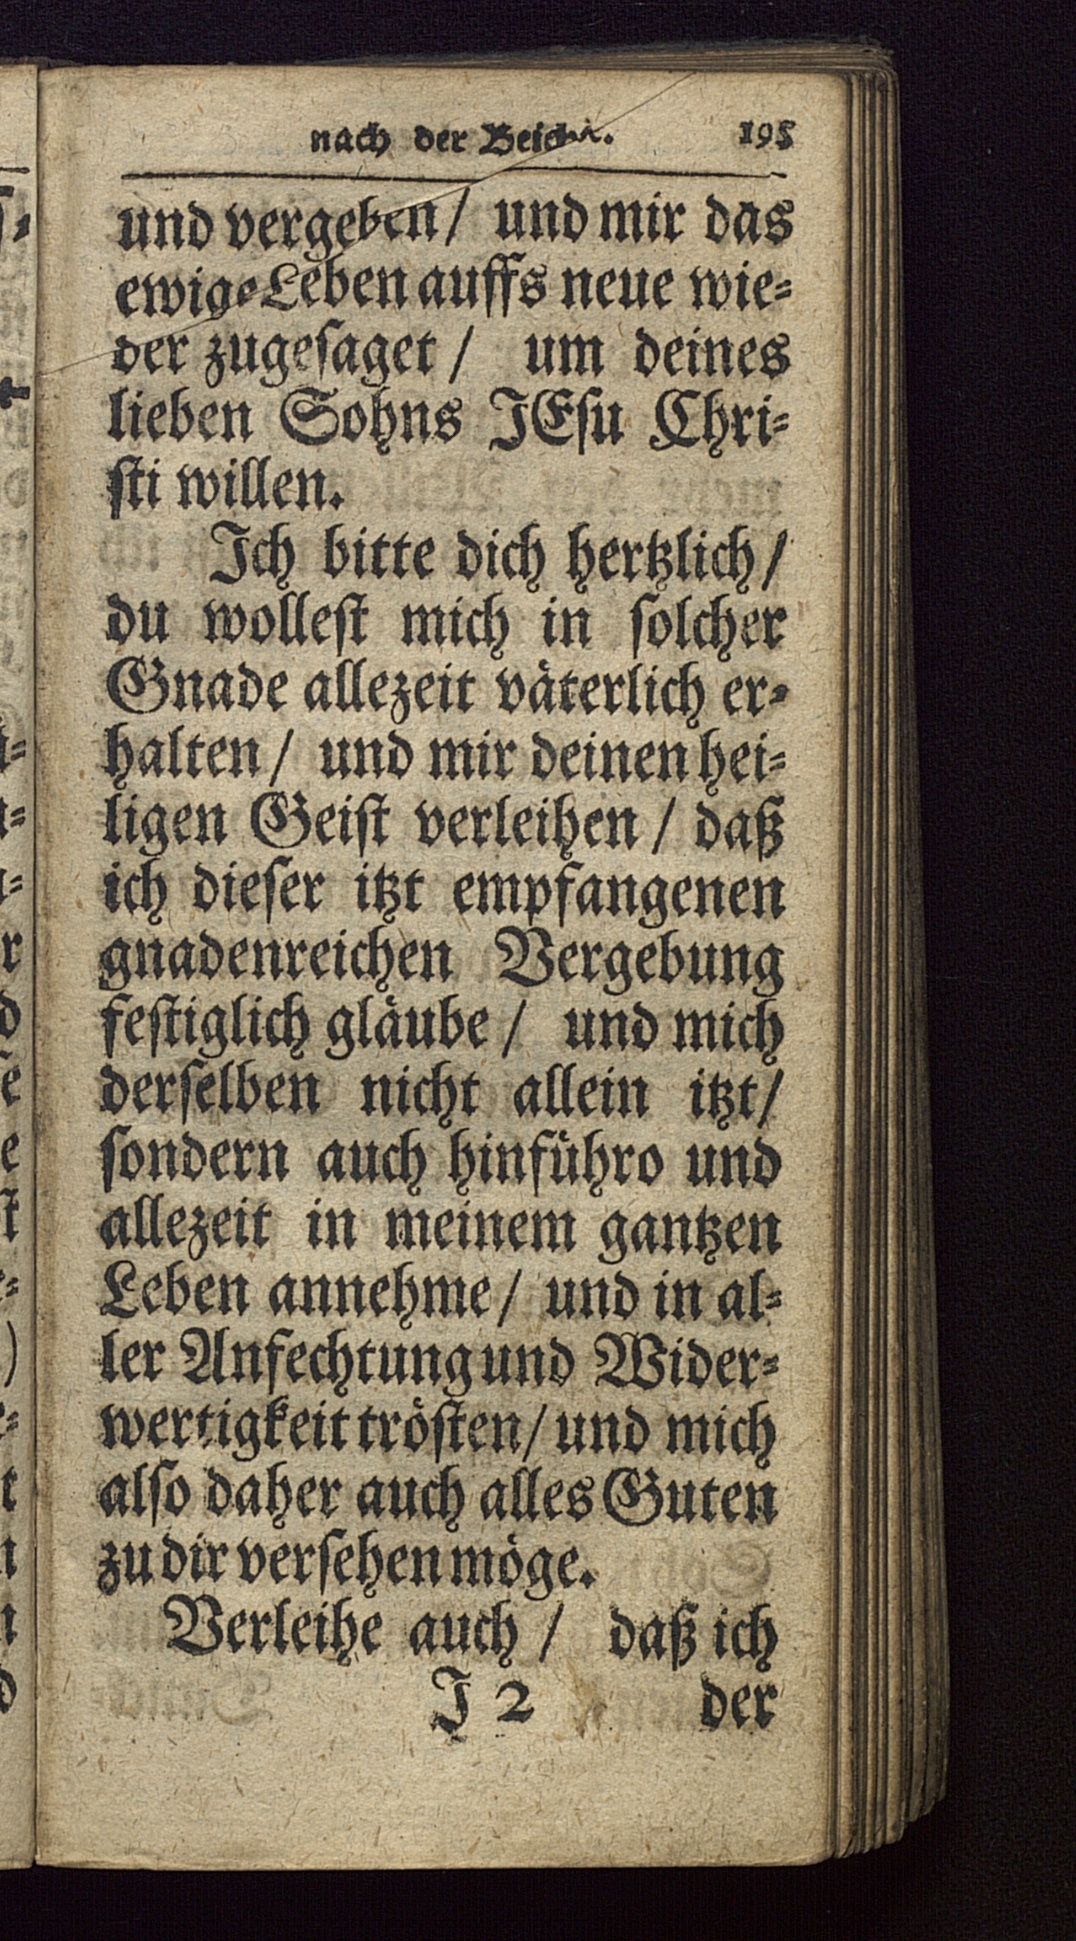 nach der Beicht. 195
und vergeben/ und mir das
ewige Leben auffs neue wie-
der zugesaget/ um deines
lieben Sohns JEsu Chri-
sti willen.
Ich bitte dich hertzlich/
du wollest mich in solcher
Gnade allezeit väterlich er-
halten/ und mir deinen hei-
ligen Geist verleihen/ daß
ich dieser itzt empfangenen
gnadenreichen Vergebung
festiglich gläube/ und mich
derselben nicht allein itzt/
sondern auch hinführo und
allezeit in meinem gantzen
Leben annehme/ und in al-
ler Anfechtung und Wider-
wertigkeit trösten/ und mich
also daher auch alles Guten
zu dir versehen möge.
Verleihe auch/ daß ich
J 2 der